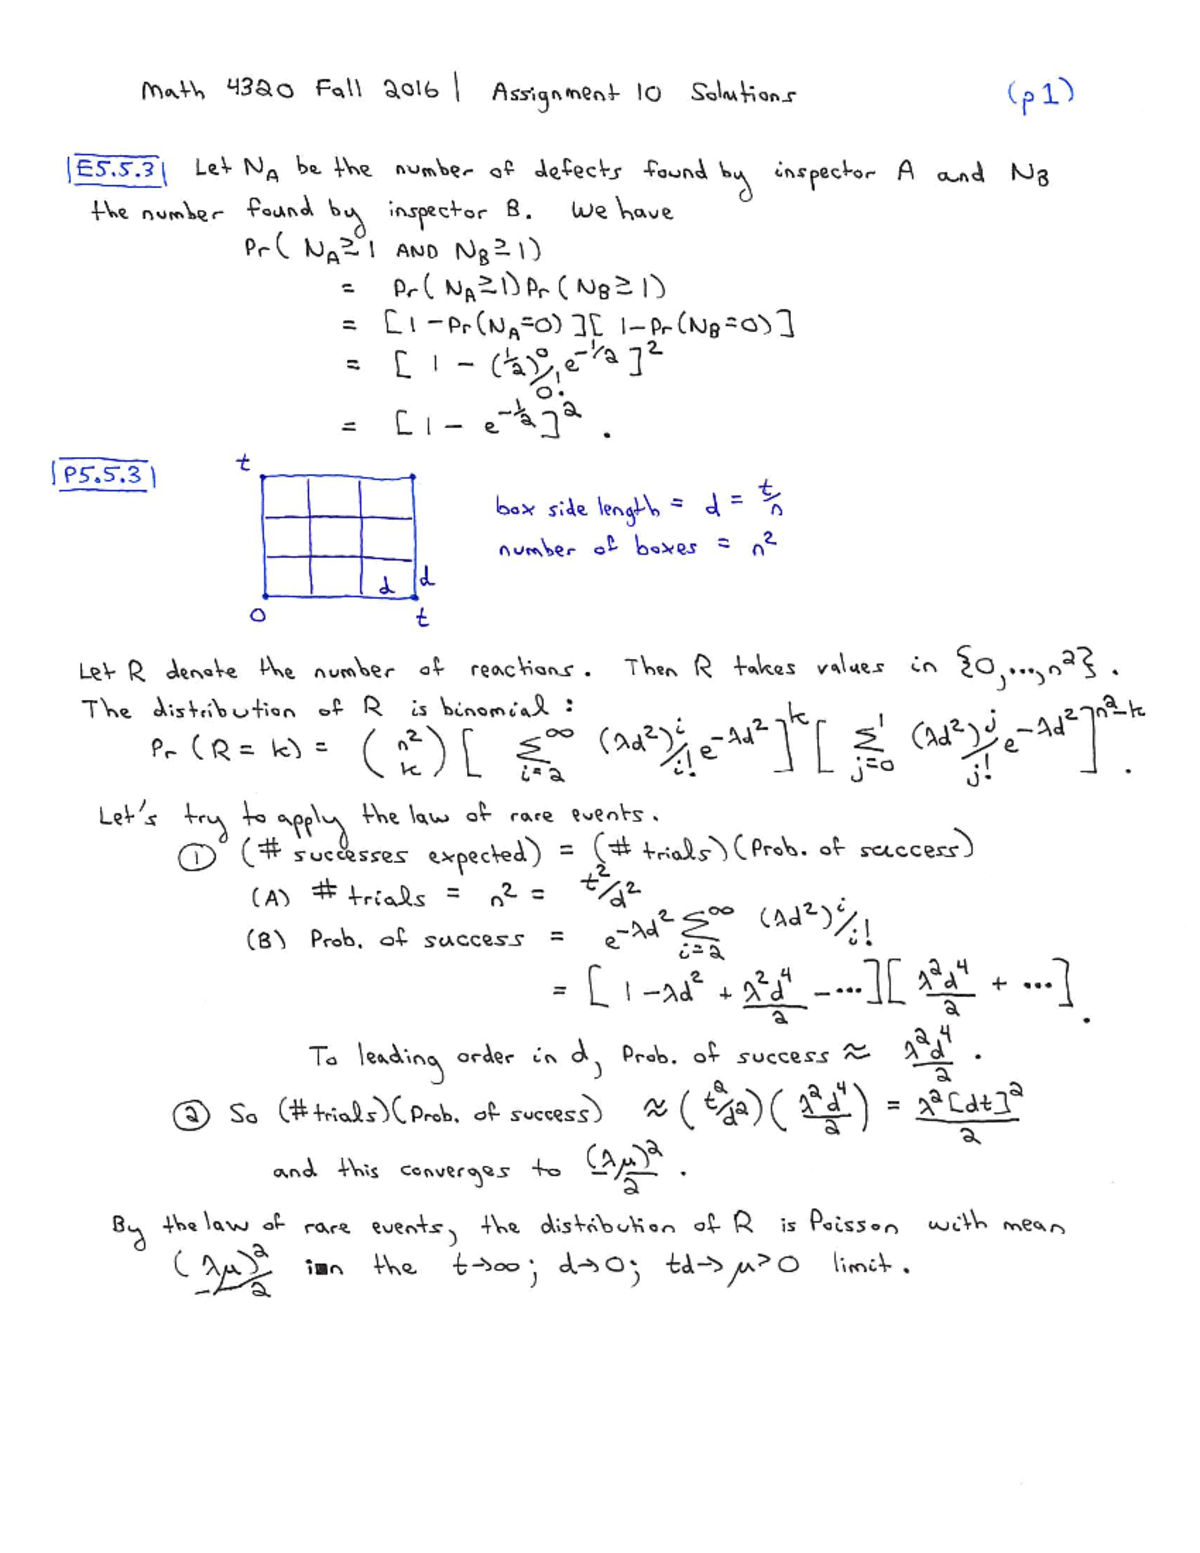 Math 4320 Fall 2016 | Assignment 10 Solutions (p1)
|E5.5.3| Let N_A be the number of defects found by inspector A and N_B
the number found by inspector B. We have
Pr( N_A≥1 AND N_B≥1)
= Pr( N_A≥1) Pr( N_B≥1)
= [1-Pr(N_A=0)][1-Pr(N_B=0)]
= [1 - (1/2)^0/0! e^{-1/2}]^2
= [1 - e^{-1/2}]^2 .
|P5.5.3|
t
box side length = d = t/n
number of boxes = n^2
d d
0 t
Let R denote the number of reactions. Then R takes values in {0,...,n^2}.
The distribution of R is binomial:
Pr (R = k) = (n^2 k) [ Σ_{i=2}^∞ (λd^2)^i/i! e^{-λd^2} ]^k [ Σ_{j=0}^1 (λd^2)^j/j! e^{-λd^2} ]^{n^2-k} .
Let's try to apply the law of rare events.
① (# successes expected) = (# trials)(Prob. of success)
(A) # trials = n^2 = t^2/d^2
(B) Prob. of success = e^{-λd^2} Σ_{i=2}^∞ (λd^2)^i/i!
= [1-λd^2 + λ^2d^4/2 - ...][λ^2d^4/2 + ...].
To leading order in d, Prob. of success ≈ λ^2d^4/2 .
② So (# trials)(Prob. of success) ≈ (t^2/d^2)(λ^2d^4/2) = λ^2[dt]^2/2
and this converges to (λμ)^2/2 .
By the law of rare events, the distribution of R is Poisson with mean
(λμ)^2/2 in the t→∞; d→0; td→μ>0 limit.